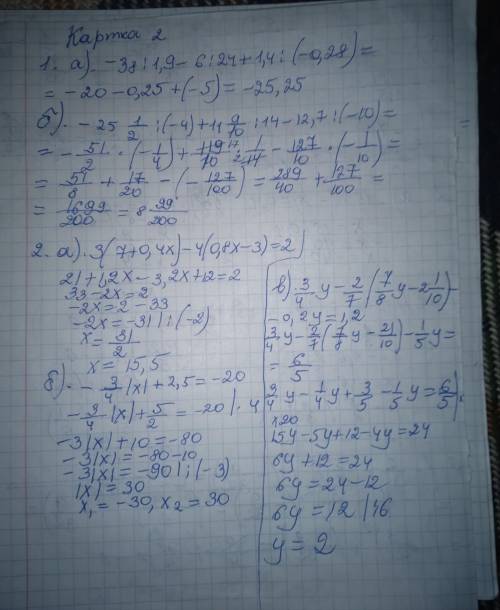 Картка 2
1. а). -38:1,9 - 6:24+1,4:(-0,28)=
= -20-0,25+(-5)= -25,25
б). -25 1/2 :(-4)+11 9/10 :14-12,7:(-10)=
= -51/2 ·(-1/4)+119/10 · 1/14 - 127/10 ·(-1/10)=
= 51/8 + 17/20 -(-127/100)= 289/40 + 127/100 =
= 1699/200 = 8 99/200
2. а). 3(7+0,4x)-4(0,8x-3)=2
21+1,2x-3,2x+12=2
33-2x=2
-2x=2-33
-2x=-31 | :(-2)
x= 31/2
x=15,5
б). -3/4 |x|+2,5=-20
-3/4 |x|+ 5/2 =-20 | · 4
-3|x|+10=-80
-3|x|=-80-10
-3|x|=-90 | :(-3)
|x|=30
x₁=-30, x₂=30
в). 3/4 y - 2/7 (7/8 y - 2 1/10)-
-0,2y=1,2
3/4 y - 2/7 (7/8 y - 21/10)- 1/5 y=
= 6/5
3/4 y - 1/4 y + 3/5 - 1/5 y = 6/5 |·
x20
15y-5y+12-4y=24
6y+12=24
6y=24-12
6y=12 | :6
y=2